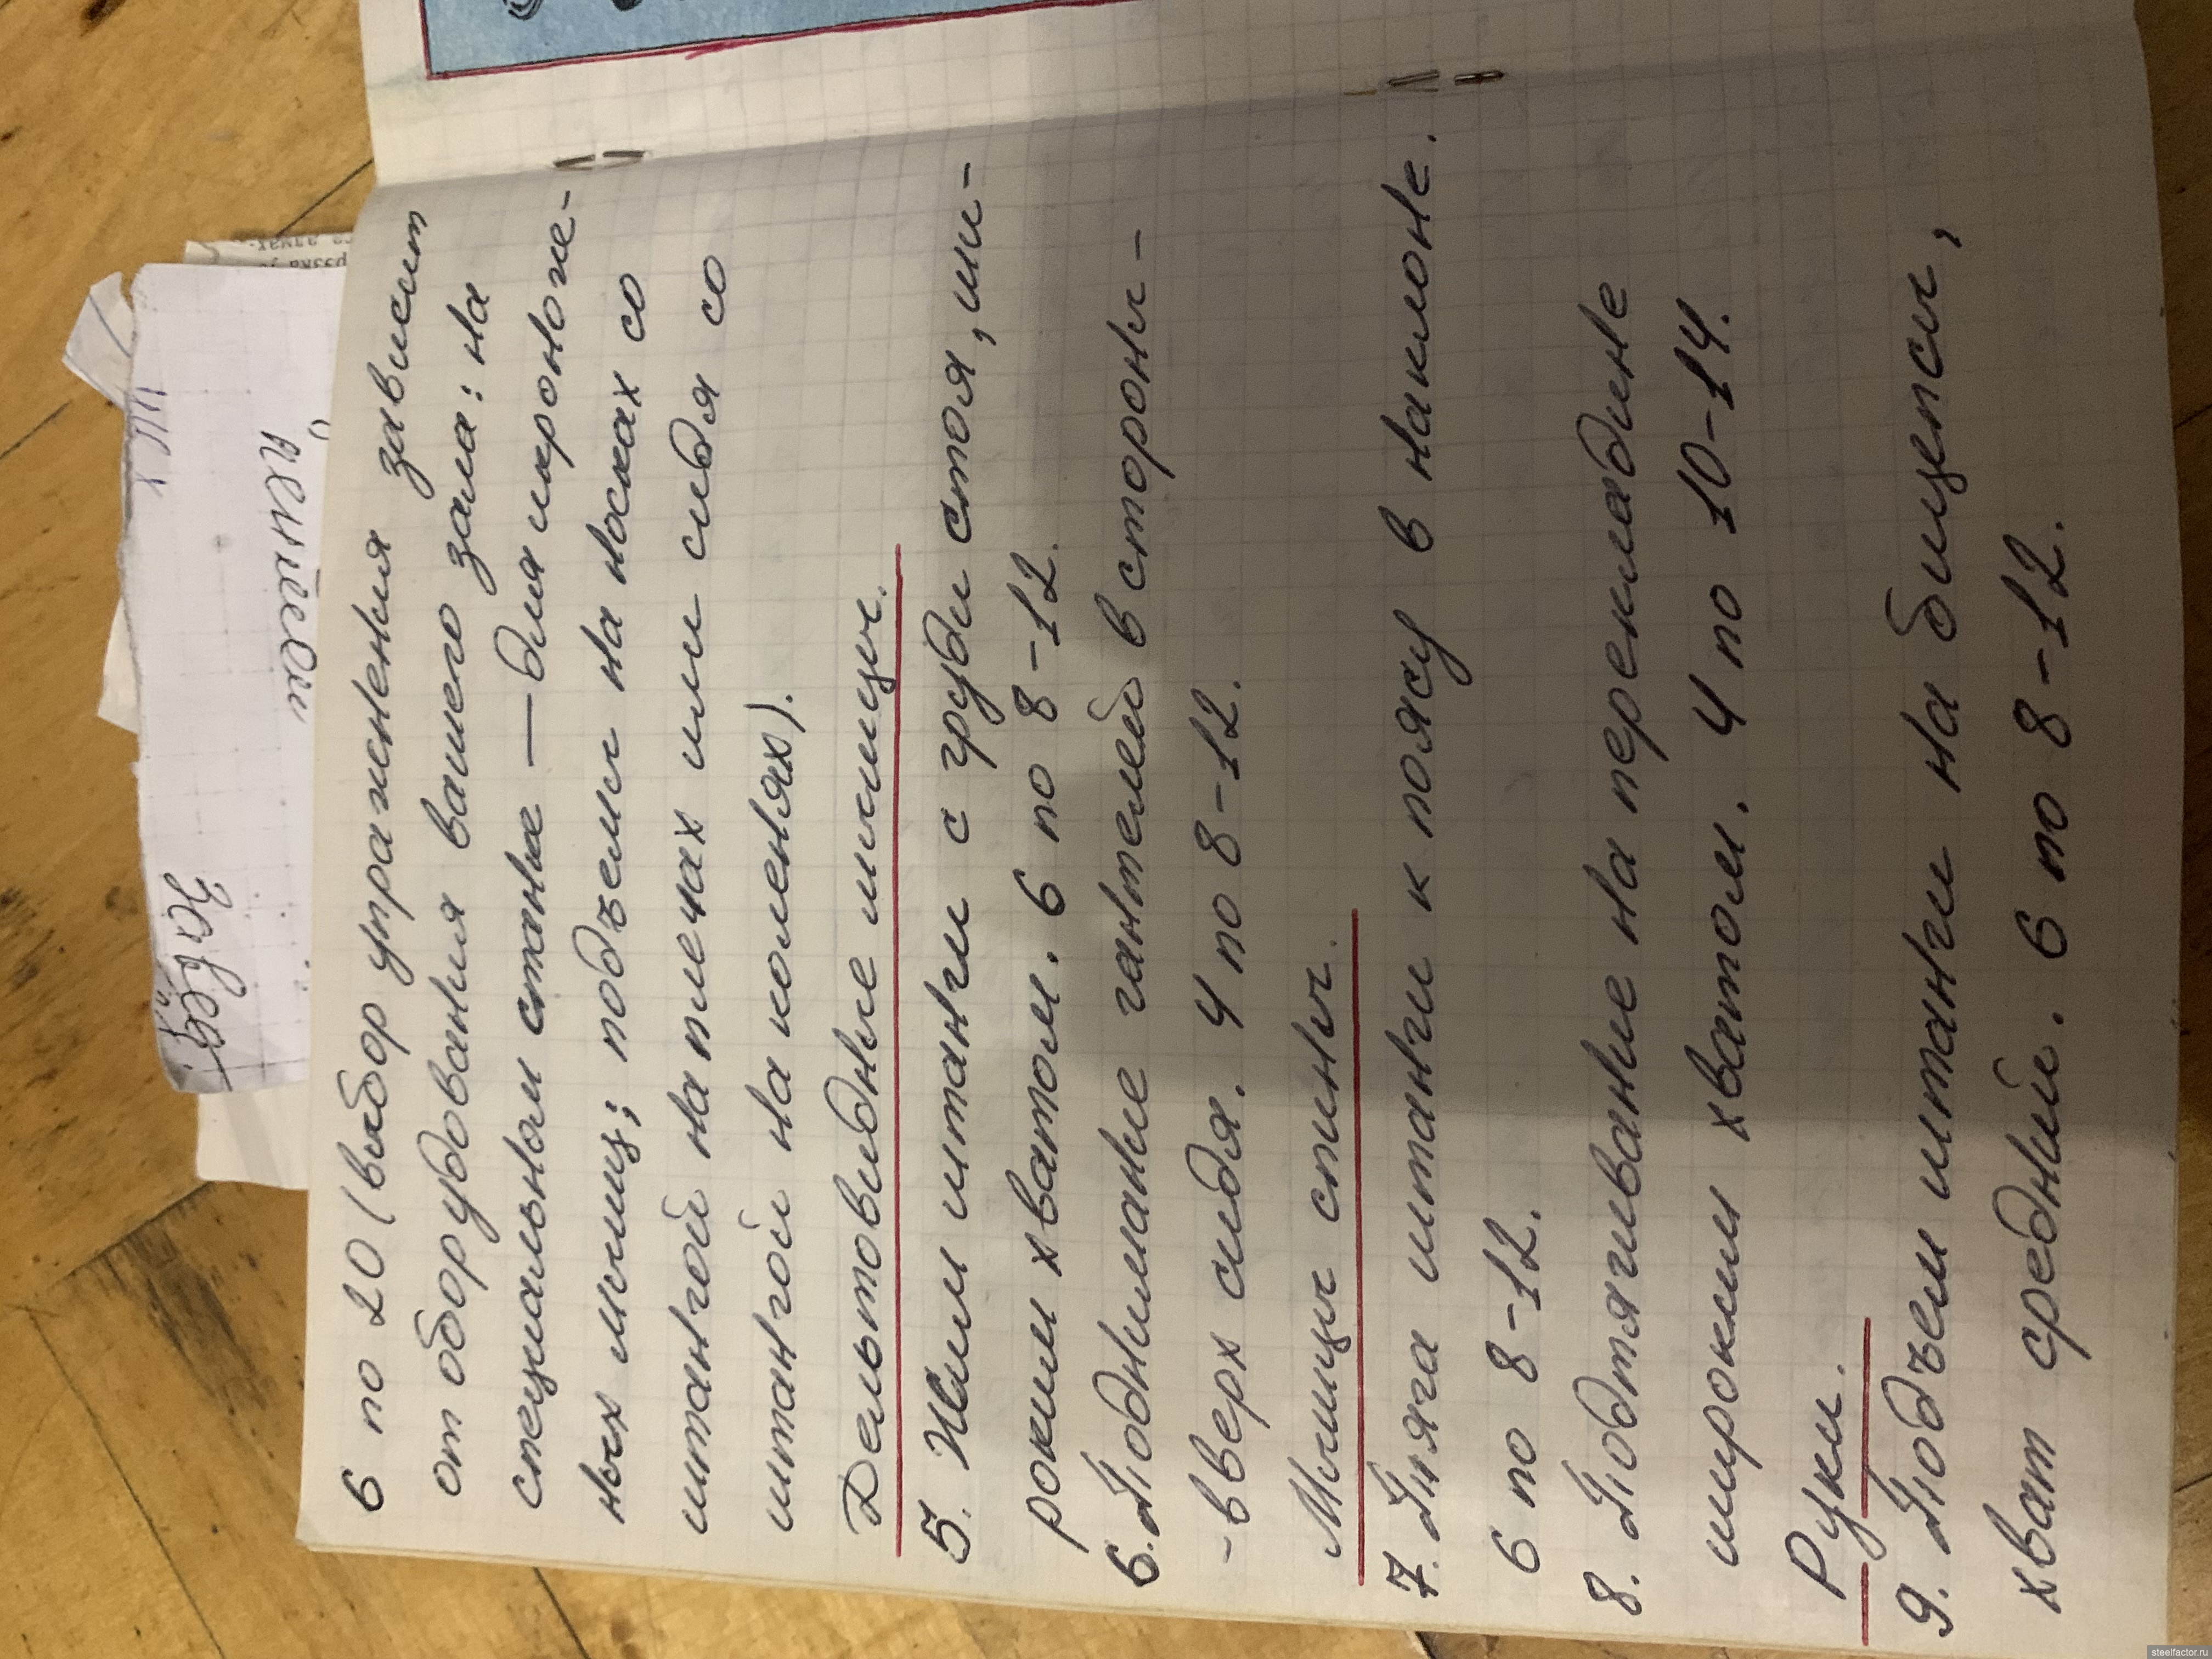 6 по 20 (выбор упражнения зависит
от оборудования вашего зала: на
специальном станке — для икроноже-
ных мышц; подъемы на носках со
штангой на плечах или сидя со
штангой на коленях).
Дельтовидные мышцы.
5. Жим штанги с груди стоя, ши-
роким хватом. 6 по 8-12.
6. Поднимание гантелей в стороны-
-вверх сидя. 4 по 8-12.
Мышцы спины.
7. Тяга штанги к поясу в наклоне.
6 по 8-12.
8. Подтягивание на перекладине
широким хватом. 4 по 10-14.
Руки.
9. Подъем штанги на бицепсы,
хват средний. 6 по 8-12.
steelfactor.ru